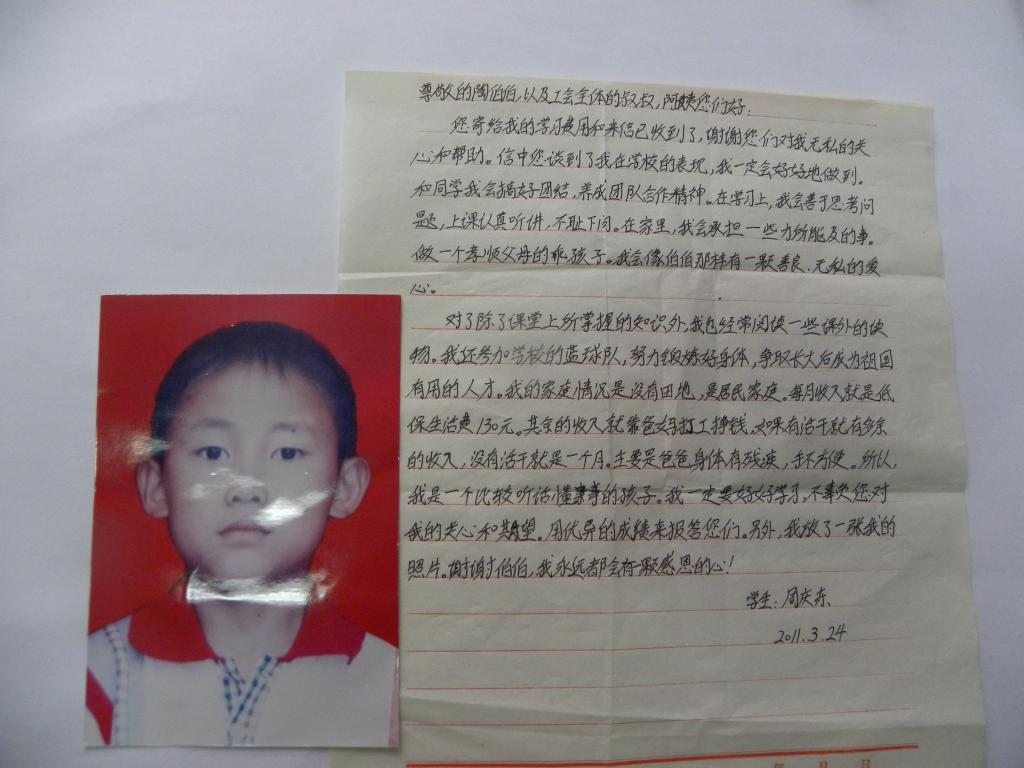 尊敬的陶伯伯,以及工会全体的叔叔,阿姨您们好:
您寄给我的学习费用和来信已收到了,谢谢您们对我无私的关
心和帮助。信中您谈到了我在学校的表现,我一定会好好地做到。
和同学我会搞好团结,养成团队合作精神。在学习上,我会善于思考问
题,上课认真听讲,不耻下问。在家里,我会承担一些力所能及的事。
做一个孝顺父母的乖孩子。我会像伯伯那样有一颗善良、无私的爱
心。
对了除了课堂上所掌握的知识外,我也经常阅读一些课外的读
物。我还参加学校的蓝球队,努力锻炼好身体,争取长大后成为祖国
有用的人才。我的家庭情况是没有田地,是居民家庭。每月收入就是低
保生活费130元。其余的收入就靠爸妈打工挣钱,如果有活干就有多余
的收入,没有活干就是一个月。主要是爸爸身体有残疾,手不方便。所以,
我是一个比较听话懂事的孩子。我一定要好好学习,不辜负您对
我的关心和期望。用优异的成绩来报答您们。另外,我放了一张我的
照片。谢谢伯伯,我永远都会有颗感恩的心!
学生:周庆东
2011.3.24
年 月 日